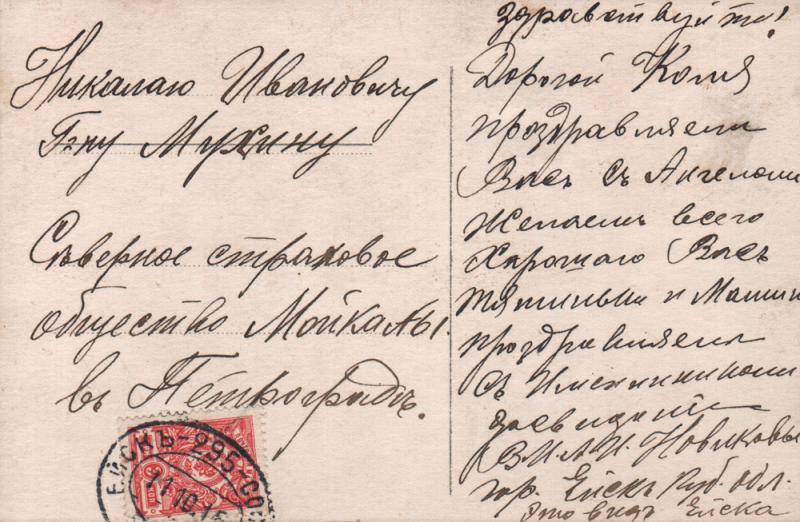 Николаю Ивановичу
Г-ну Мухину
Северное страховое
общество Мойка №1.
въ Петроградъ.
ЕЙСКЪ-295-СО
11 10 15
3 КОП
Здравствуйте!
Дорогой Коля
проздравляем
Васъ съ Ангелом
желаем всего
Харошаго Васъ
Тятиньки и Мамин
проздравляем
съ Имениникоми
досвидан
В.И.А.И. Новиковы
гор. Ейскъ Куб. обл.
Это видъ Ейска